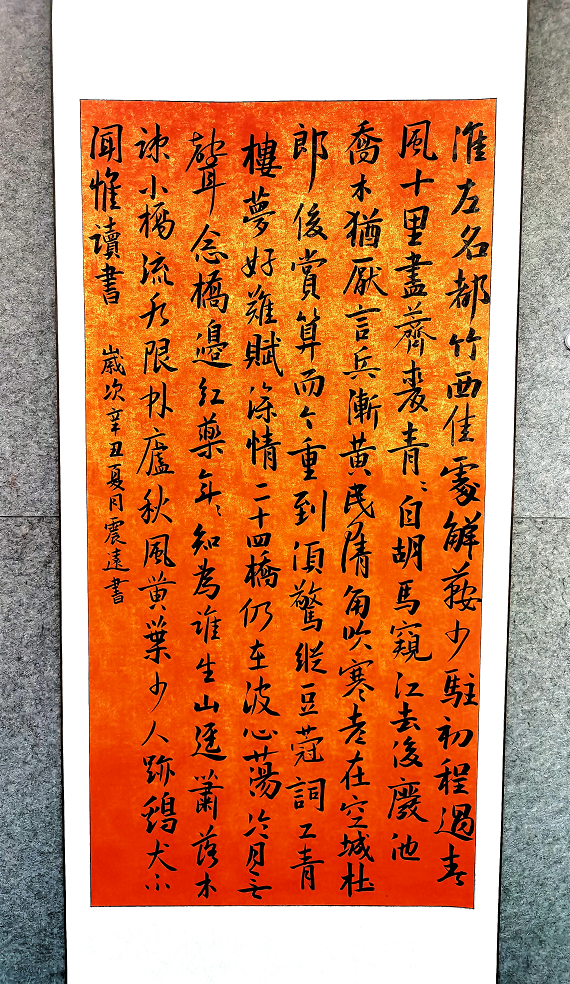 淮左名都竹西佳處解鞍少駐初程過春
風十里盡薺麥青〻自胡馬窺江去後廢池
喬木猶厭言兵漸黃昏清角吹寒都在空城杜
郎俊賞算而今重到須驚縱豆蔻詞工青
樓夢好難賦深情二十四橋仍在波心蕩冷月無
聲念橋邊紅藥年〻知為誰生山逕蕭落木
疎小橋流水限林廬秋風黃葉少人跡鷄犬不
聞惟讀書 歲次辛丑夏月震遠書